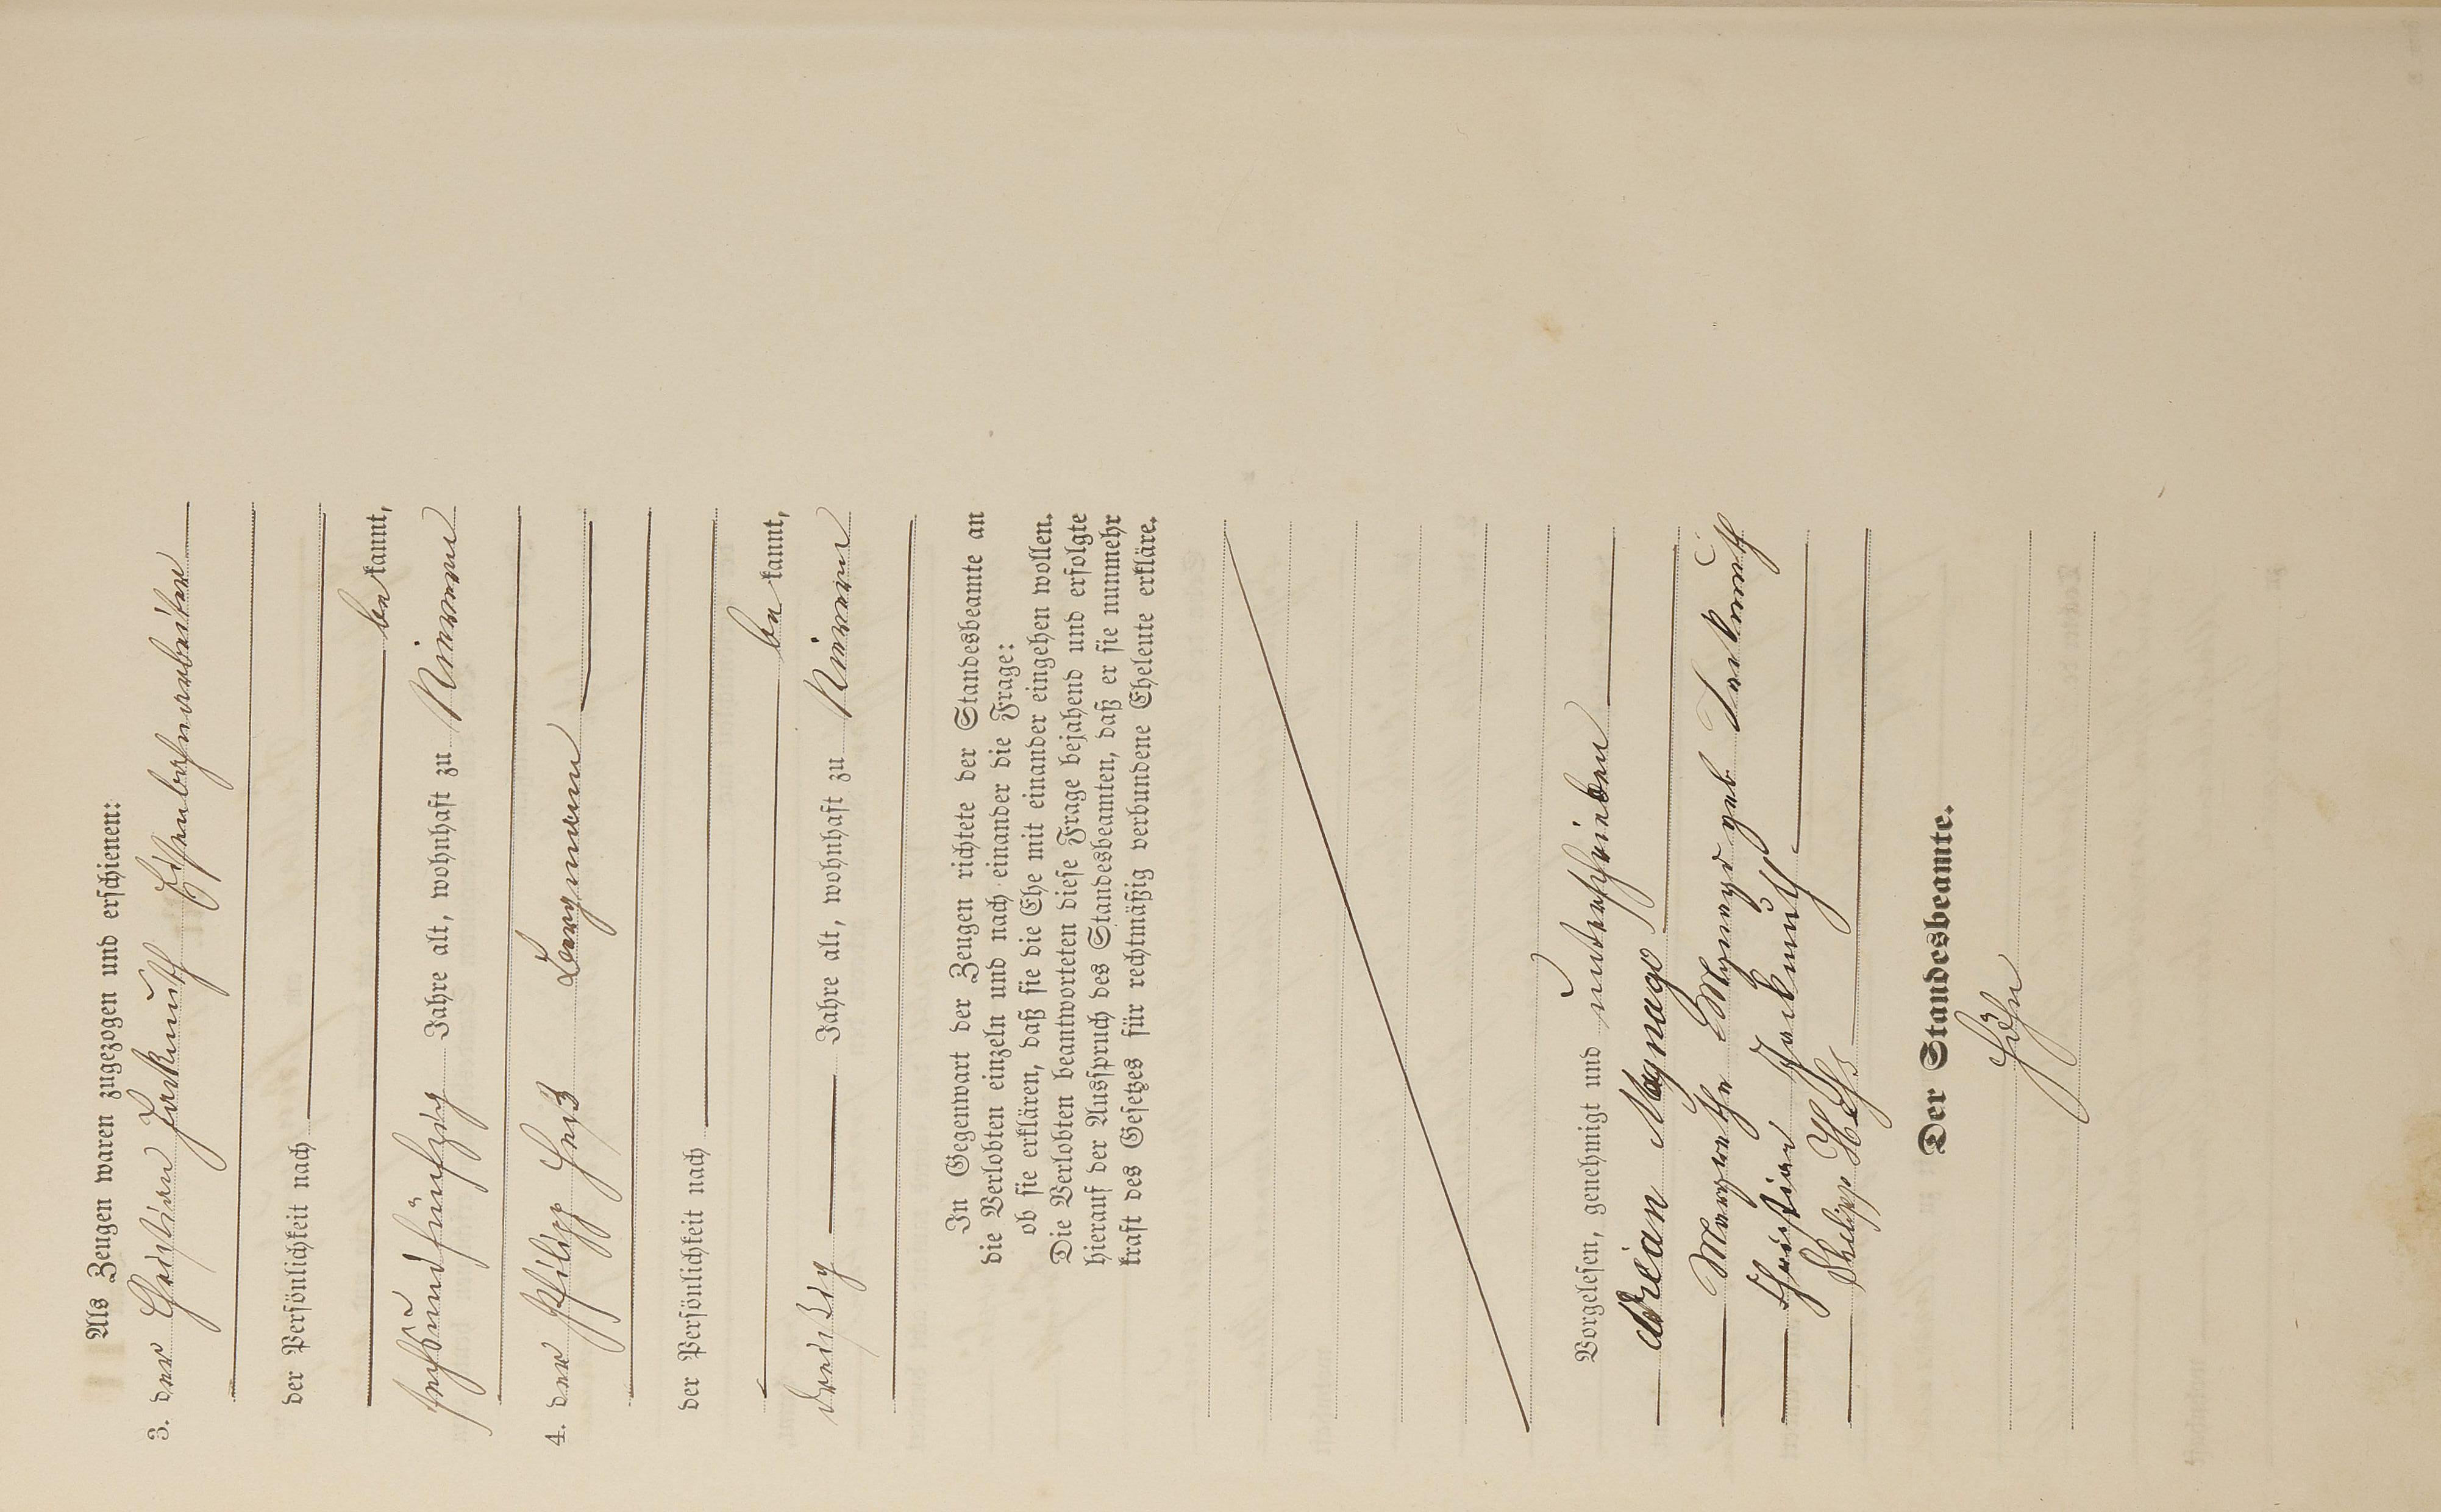 Als Zeugen waren zugezogen und erschienen:
3. der Christian Eisenbahnarbeiter
der Persönlichkeit nach
bekannt,
sechsundfünfzig Jahre alt, wohnhaft zu Nievern
4. der Philipp Heß Bergmann
der Persönlichkeit nach
bekannt,
dreißig Jahre alt, wohnhaft zu Nievern
In Gegenwart der Zeugen richtete der Standesbeamte an
die Verlobten einzeln und nach einander die Frage:
ob sie erklären, daß sie die Ehe mit einander eingehen wollen.
Die Verlobten beantworteten diese Frage bejahend und erfolgte
hierauf der Ausspruch des Standesbeamten, daß er sie nunmehr
kraft des Gesetzes für rechtmäßig verbundene Eheleute erkläre.
Vorgelesen, genehmigt und unterschrieben
Magnago
Margarethe Magnago geb
Christian
Philipp Hehs
Der Standesbeamte.
Höhn